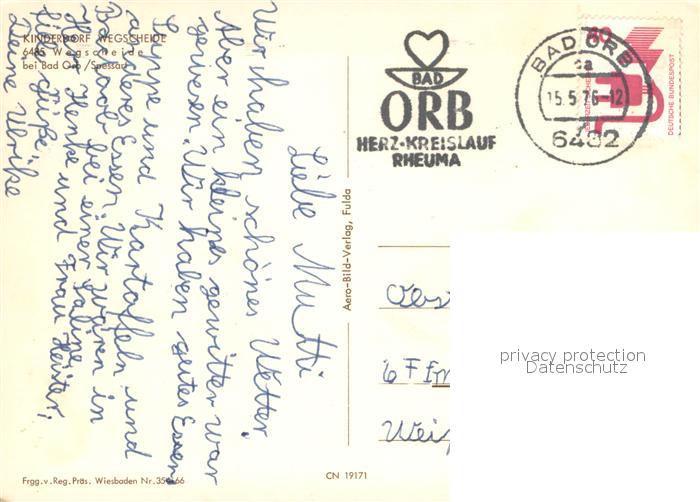 KINDERDORF WEGSCHEIDE
6485 Wegscheide
bei Bad Orb/Spessart
Liebe Mutti
Wir haben schönes Wetter.
Aber ein kleines gewitter war
gewesen. Wir haben gutes Essen
Suppe und Kartoffeln und
anderes Essen. Wir waren in
Bad Orb bei einer Saline
Herr Henke und Frau Heister,
liebe Grüße
Deine Ulrike
Aero-Bild-Verlag, Fulda
BAD
ORB
HERZ-KREISLAUF
RHEUMA
BAD ORB
ca
15.5.76-12
6482
40
DEUTSCHE BUNDESPOST
6 Ff
privacy protection
Datenschutz
Frgg.v.Reg.Präs. Wiesbaden Nr.
CN 19171